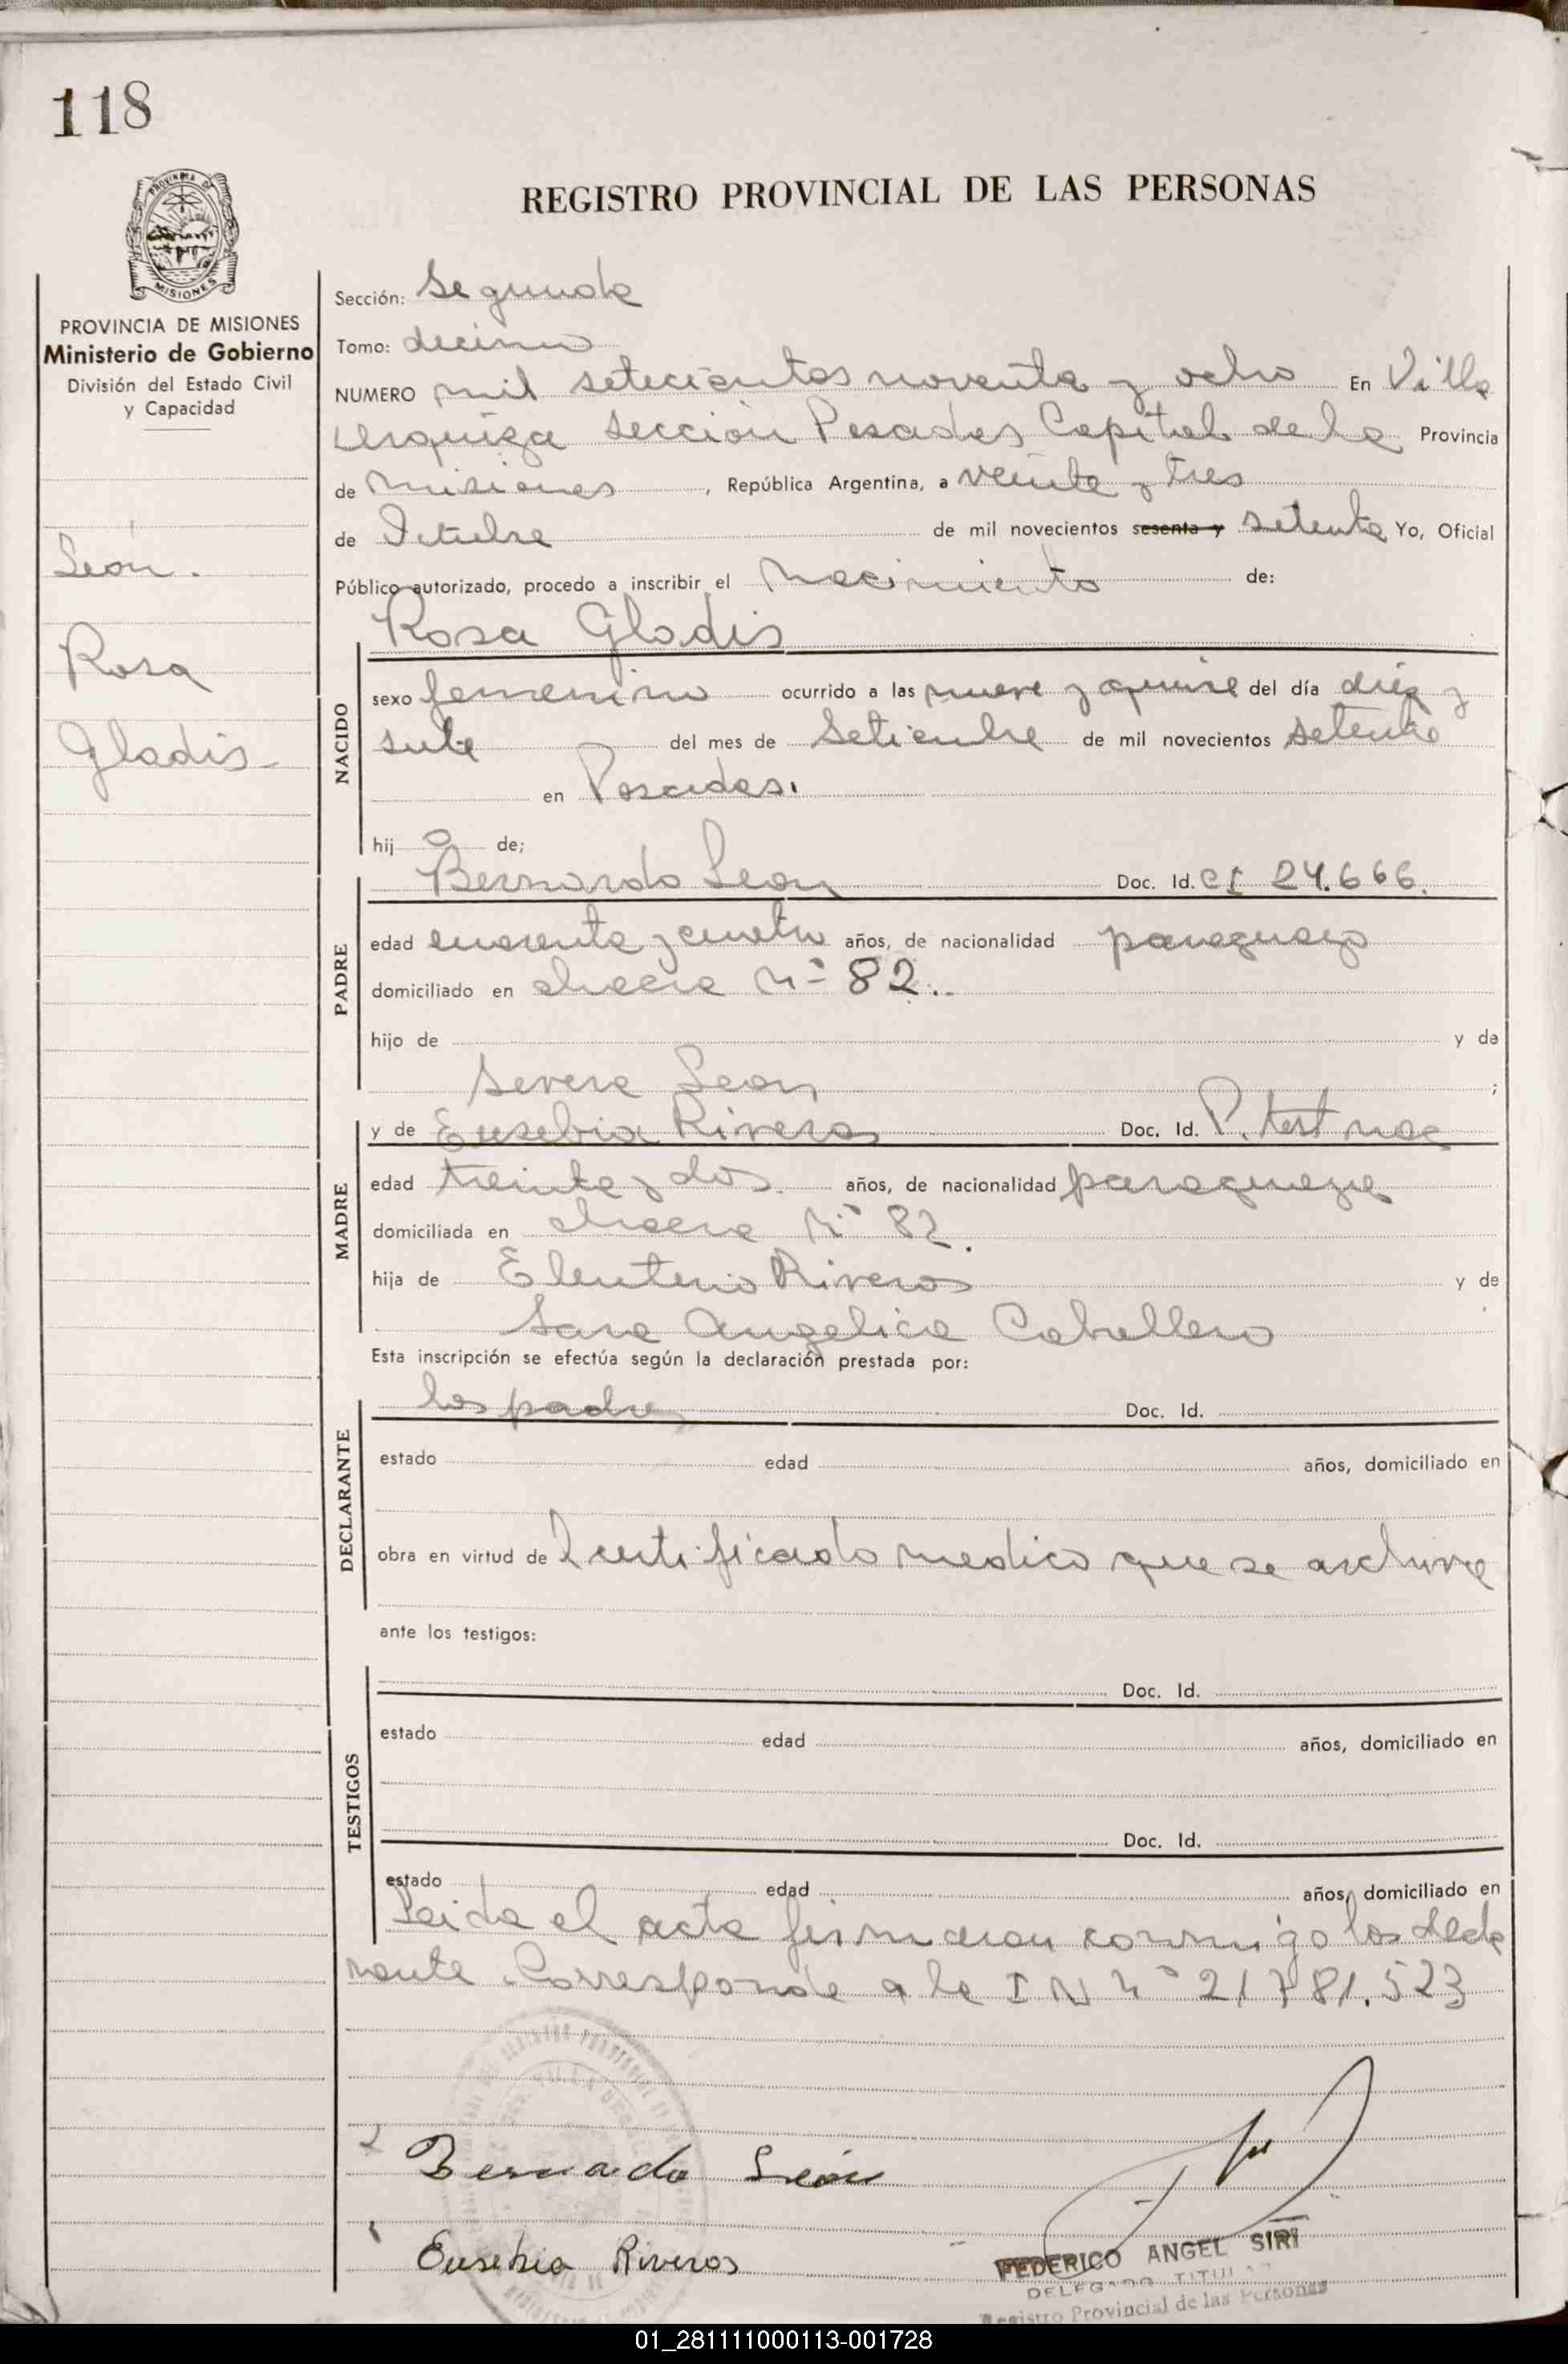 118
REGISTRO PROVINCIAL DE LAS PERSONAS
PROVINCIA DE MISIONES
Ministerio de Gobierno
División del Estado Civil
y Capacidad
León.
Rosa
Gladis
Sección: Segunda
Tomo: decimo
NUMERO mil setecientos noventa y ocho En Villa
Urquiza sección Posadas Capital de la Provincia
de Misiones, República Argentina, a veinte y tres
de Octubre de mil novecientos sesenta y setenta Yo, Oficial
Público autorizado, procedo a inscribir el Nacimiento de:
Rosa Gladis
NACIDO
sexo femenino ocurrido a las nueve y quince del día diez y
siete del mes de Setiembre de mil novecientos setenta
en Posadas.
hij a de;
Bernardo Leon Doc. Id. CI 24.666.
PADRE
edad cuarenta y cuatro años, de nacionalidad paraguayo
domiciliado en chacra Nº 82.
hijo de y de
Severa Leon ;
MADRE
y de Eusebia Riveros Doc. Id. P. test nac
edad treinta y dos años, de nacionalidad paraguaya
domiciliada en chacra Nº 82.
hija de Eleuterio Riveros y de
Sara Angelica Caballero
Esta inscripción se efectúa según la declaración prestada por:
DECLARANTE
los padres Doc. Id.
estado edad años, domiciliado en
obra en virtud de certificado medico que se archiva
ante los testigos:
TESTIGOS
Doc. Id.
estado edad años, domiciliado en
Doc. Id.
estado edad años, domiciliado en
Leida el acta firmaron conmigo los decla
rante. Corresponde a la I N Nº 21781.523
Bernardo León
Eusebia Riveros
FEDERICO ANGEL SIRI
DELEGADO TITUL
Registro Provincial de las Personas
01_281111000113-001728